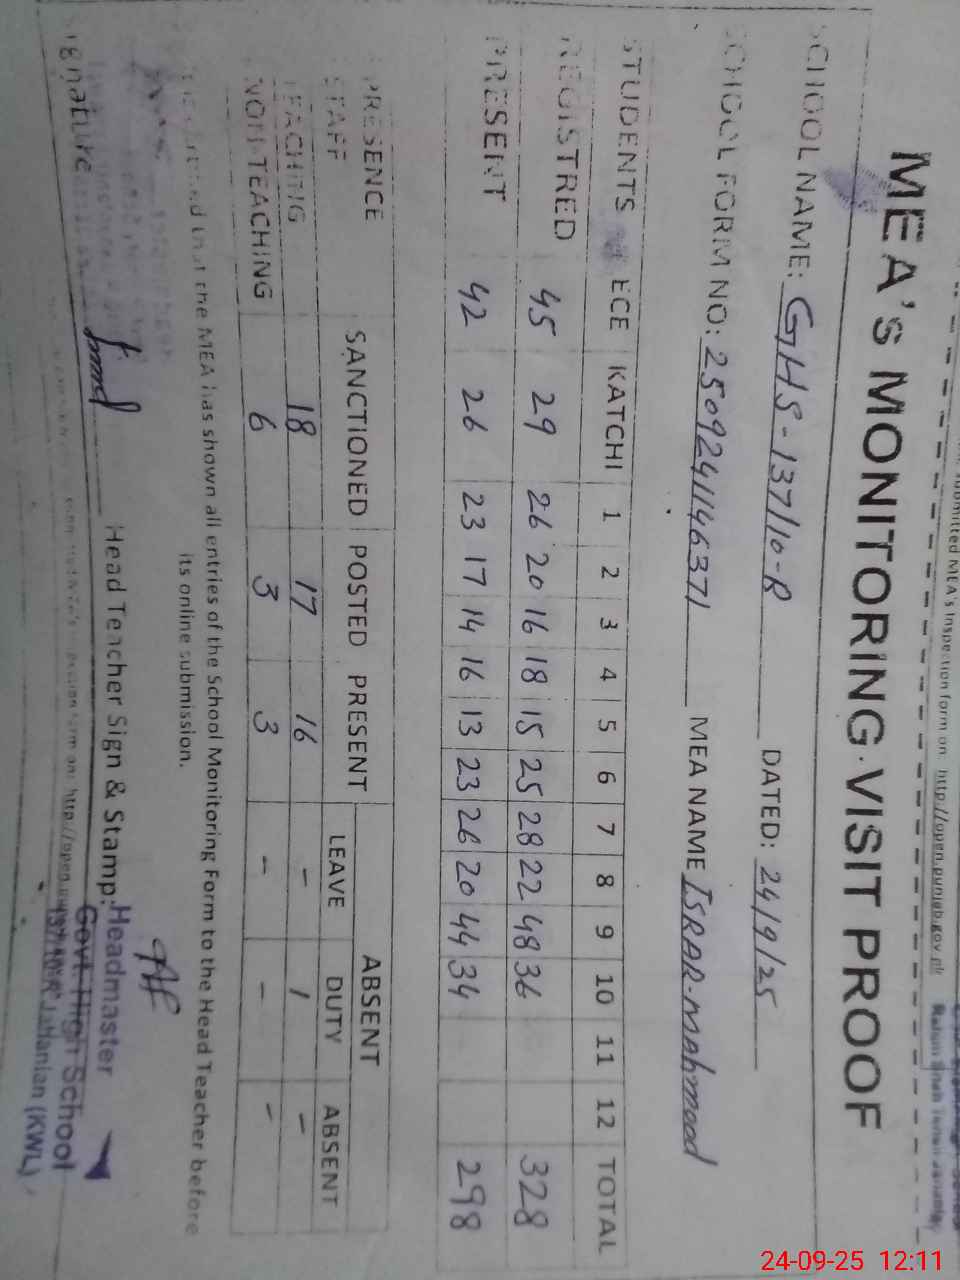 submitted MEA's Inspection form on http://open.punjab.gov.pk
MEA's MONITORING VISIT PROOF
SCHOOL NAME: GHS-137/10-R DATED: 24/9/25
SCHOOL FORM NO: 2509241146371 MEA NAME ISRAR-Mahmood
STUDENTS ECE KATCHI 1 2 3 4 5 6 7 8 9 10 11 12 TOTAL
REGISTRED 45 29 26 20 16 18 15 25 28 22 48 36 328
PRESENT 42 26 23 17 14 16 13 23 26 20 44 34 298
PRESENCE SANCTIONED POSTED PRESENT ABSENT
STAFF LEAVE DUTY ABSENT
TEACHING 18 17 16 - 1 -
NON TEACHING 6 3 3 - - -
that the MEA has shown all entries of the School Monitoring Form to the Head Teacher before
its online submission.
Signature Head Teacher Sign & Stamp:
Headmaster
Govt. High School
137/10-R Jahanian (KWL)
24-09-25 12:11